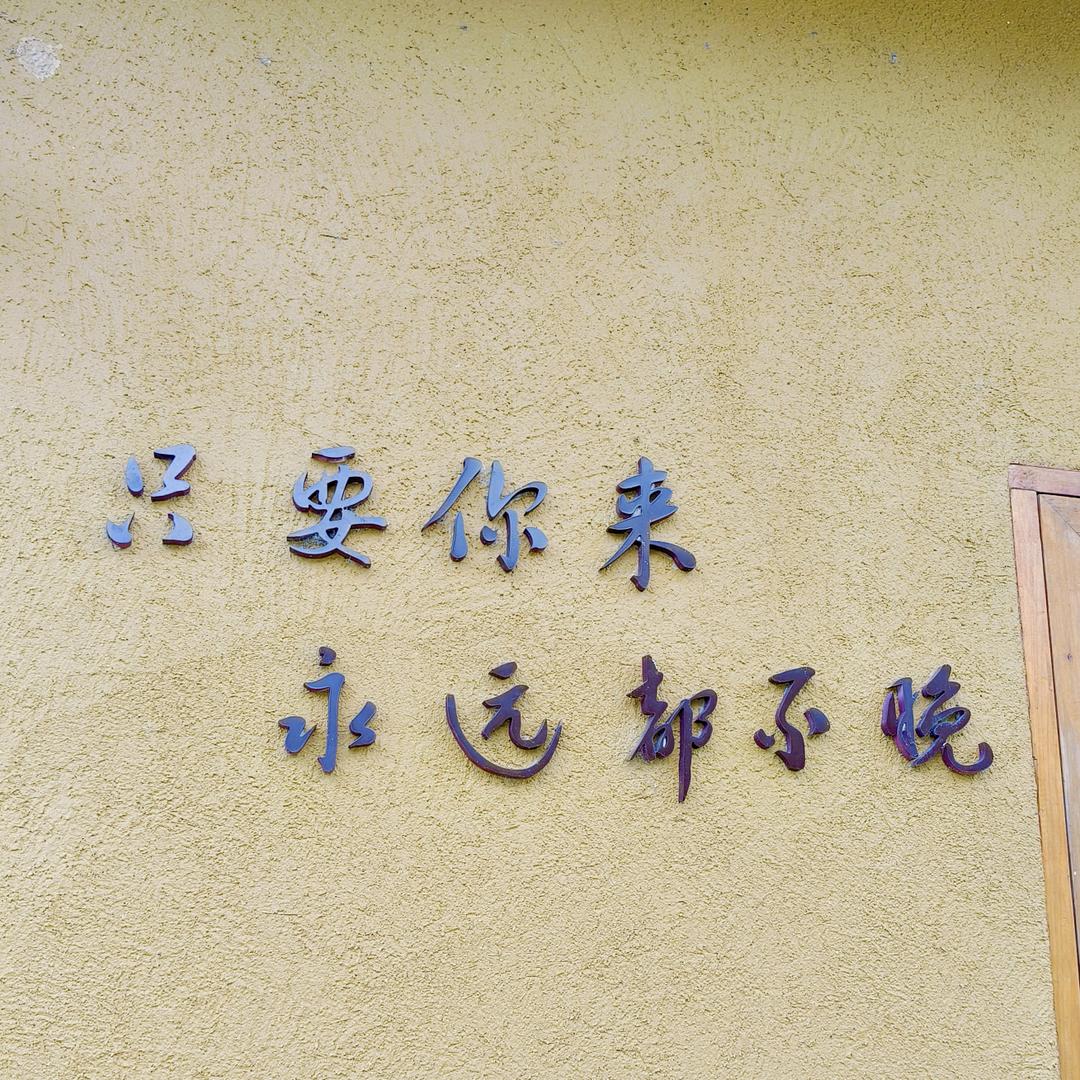 只要你来
永远都不晚